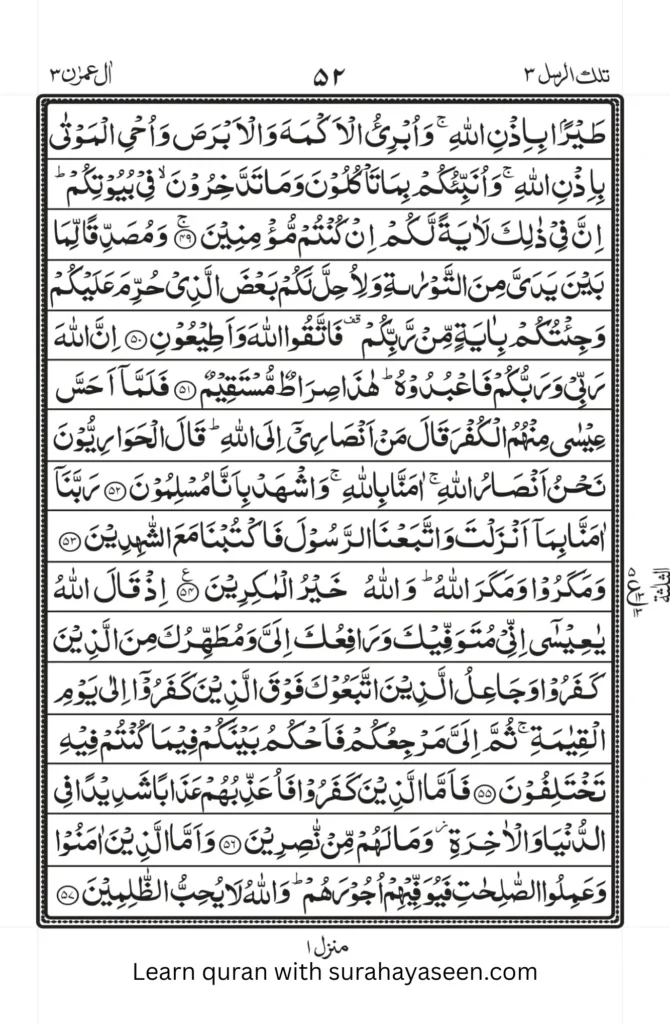 تلك الرسل ٣ ٥٢ اٰل عمرٰن ٣
طَيْرًاۢ بِاِذْنِ اللّٰهِ ۚ وَاُبْرِئُ الْاَكْمَهَ وَالْاَبْرَصَ وَاُحْىِ الْمَوْتٰى
بِاِذْنِ اللّٰهِ ۚ وَاُنَبِّئُكُمْ بِمَا تَاْكُلُوْنَ وَمَا تَدَّخِرُوْنَ ۙ فِىْ بُيُوْتِكُمْ ؕ
اِنَّ فِىْ ذٰلِكَ لَاٰيَةً لَّكُمْ اِنْ كُنْتُمْ مُّؤْمِنِيْنَ ۚ ﴿٤٩﴾ وَمُصَدِّقًا لِّمَا
بَيْنَ يَدَىَّ مِنَ التَّوْرٰىةِ وَلِاُحِلَّ لَكُمْ بَعْضَ الَّذِىْ حُرِّمَ عَلَيْكُمْ
وَجِئْتُكُمْ بِاٰيَةٍ مِّنْ رَّبِّكُمْ قف فَاتَّقُوا اللّٰهَ وَاَطِيْعُوْنِ ﴿٥٠﴾ اِنَّ اللّٰهَ
رَبِّىْ وَرَبُّكُمْ فَاعْبُدُوْهُ ؕ هٰذَا صِرَاطٌ مُّسْتَقِيْمٌ ﴿٥١﴾ فَلَمَّاۤ اَحَسَّ
عِيْسٰى مِنْهُمُ الْكُفْرَ قَالَ مَنْ اَنْصَارِىْۤ اِلَى اللّٰهِ ؕ قَالَ الْحَوَارِيُّوْنَ
نَحْنُ اَنْصَارُ اللّٰهِ ۚ اٰمَنَّا بِاللّٰهِ ۚ وَاشْهَدْ بِاَنَّا مُسْلِمُوْنَ ﴿٥٢﴾ رَبَّنَاۤ
اٰمَنَّا بِمَاۤ اَنْزَلْتَ وَاتَّبَعْنَا الرَّسُوْلَ فَاكْتُبْنَا مَعَ الشّٰهِدِيْنَ ﴿٥٣﴾
وَمَكَرُوْا وَمَكَرَ اللّٰهُ ؕ وَاللّٰهُ خَيْرُ الْمٰكِرِيْنَ ﴿٥٤﴾ ع اِذْ قَالَ اللّٰهُ
يٰعِيْسٰۤى اِنِّىْ مُتَوَفِّيْكَ وَرَافِعُكَ اِلَىَّ وَمُطَهِّرُكَ مِنَ الَّذِيْنَ
كَفَرُوْا وَجَاعِلُ الَّذِيْنَ اتَّبَعُوْكَ فَوْقَ الَّذِيْنَ كَفَرُوْۤا اِلٰى يَوْمِ
الْقِيٰمَةِ ۚ ثُمَّ اِلَىَّ مَرْجِعُكُمْ فَاَحْكُمُ بَيْنَكُمْ فِيْمَا كُنْتُمْ فِيْهِ
تَخْتَلِفُوْنَ ﴿٥٥﴾ فَاَمَّا الَّذِيْنَ كَفَرُوْا فَاُعَذِّبُهُمْ عَذَابًا شَدِيْدًا فِى
الدُّنْيَا وَالْاٰخِرَةِ وَمَا لَهُمْ مِّنْ نّٰصِرِيْنَ ﴿٥٦﴾ وَاَمَّا الَّذِيْنَ اٰمَنُوْا
وَعَمِلُوا الصّٰلِحٰتِ فَيُوَفِّيْهِمْ اُجُوْرَهُمْ ؕ وَاللّٰهُ لَا يُحِبُّ الظّٰلِمِيْنَ ﴿٥٧﴾
منزل ١
Learn quran with surahayaseen.com